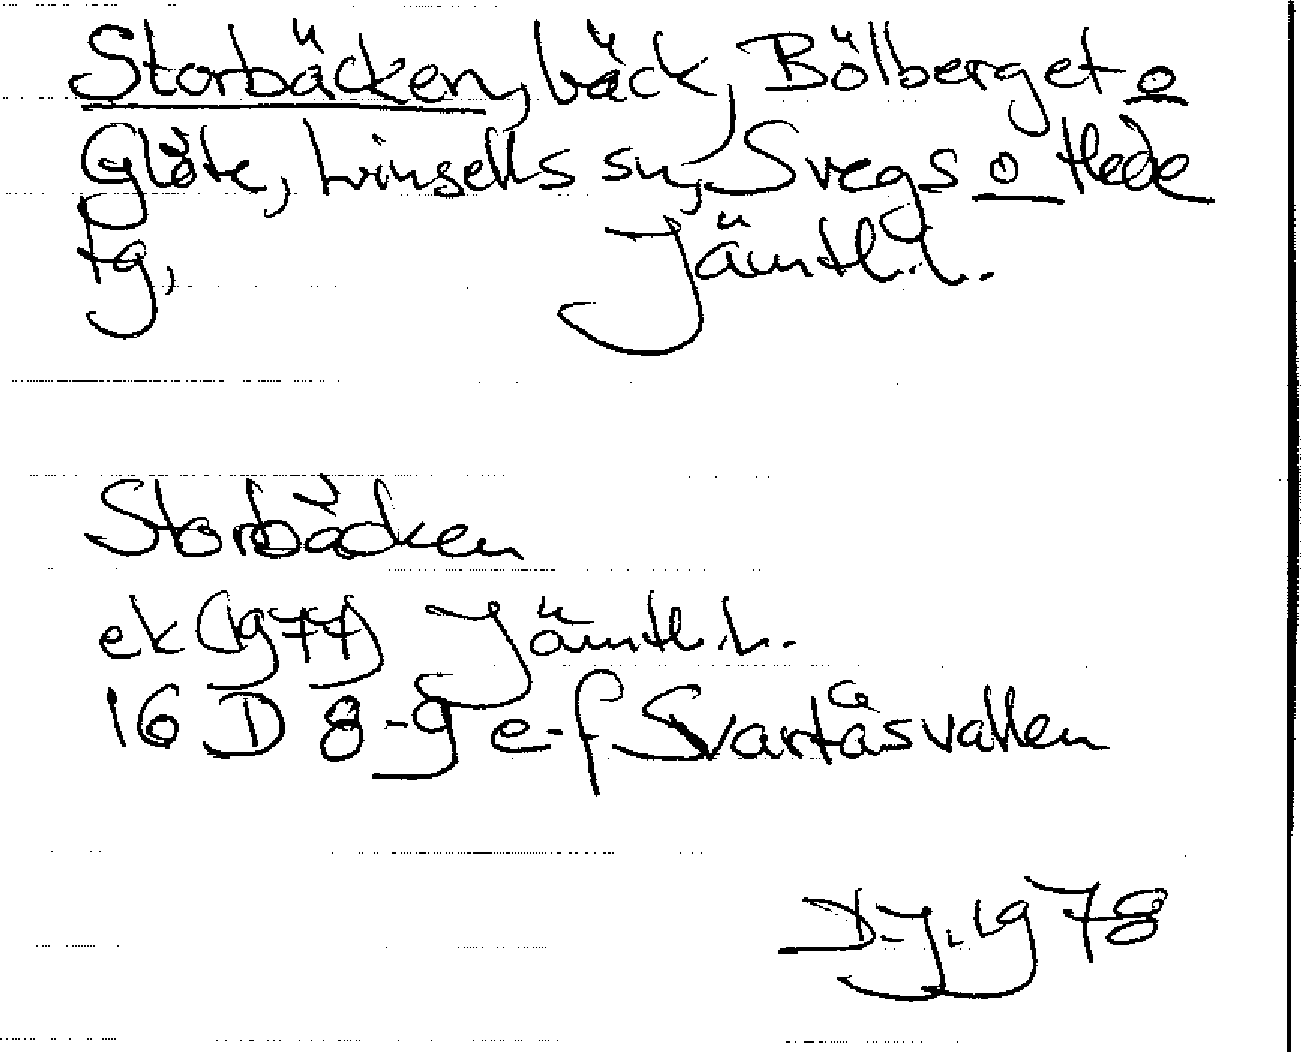 Storbäcken, bäck, Bölberget o
Glöte, Linsells sn, Svegs o Hede
tg, Jämtl. l.
Storbäcken
ek (1977) Jämtl. l.
16 D 8-9 e-f Svartåsvallen
D.J. 1978